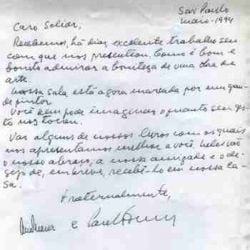 São Paulo
maio-1994
Caro Soliar,
Recebemos, há dias, excelente trabalho seu
com que nos presenteou. Como é bom e
bonito admirar a boniteza de uma obra de
arte.
Nossa sala está agora marcada por um gran-
de pintor.
Você nem pode imaginar o quanto seu ges-
to nos tocou.
Vão alguns de nossos livros com os quais
nos apresentamos melhor a você. Neles vão
o nosso abraço, a nossa amizade e o de-
sejo de, em breve, recebê-lo em nossa ca-
sa.
Fraternalmente,
e